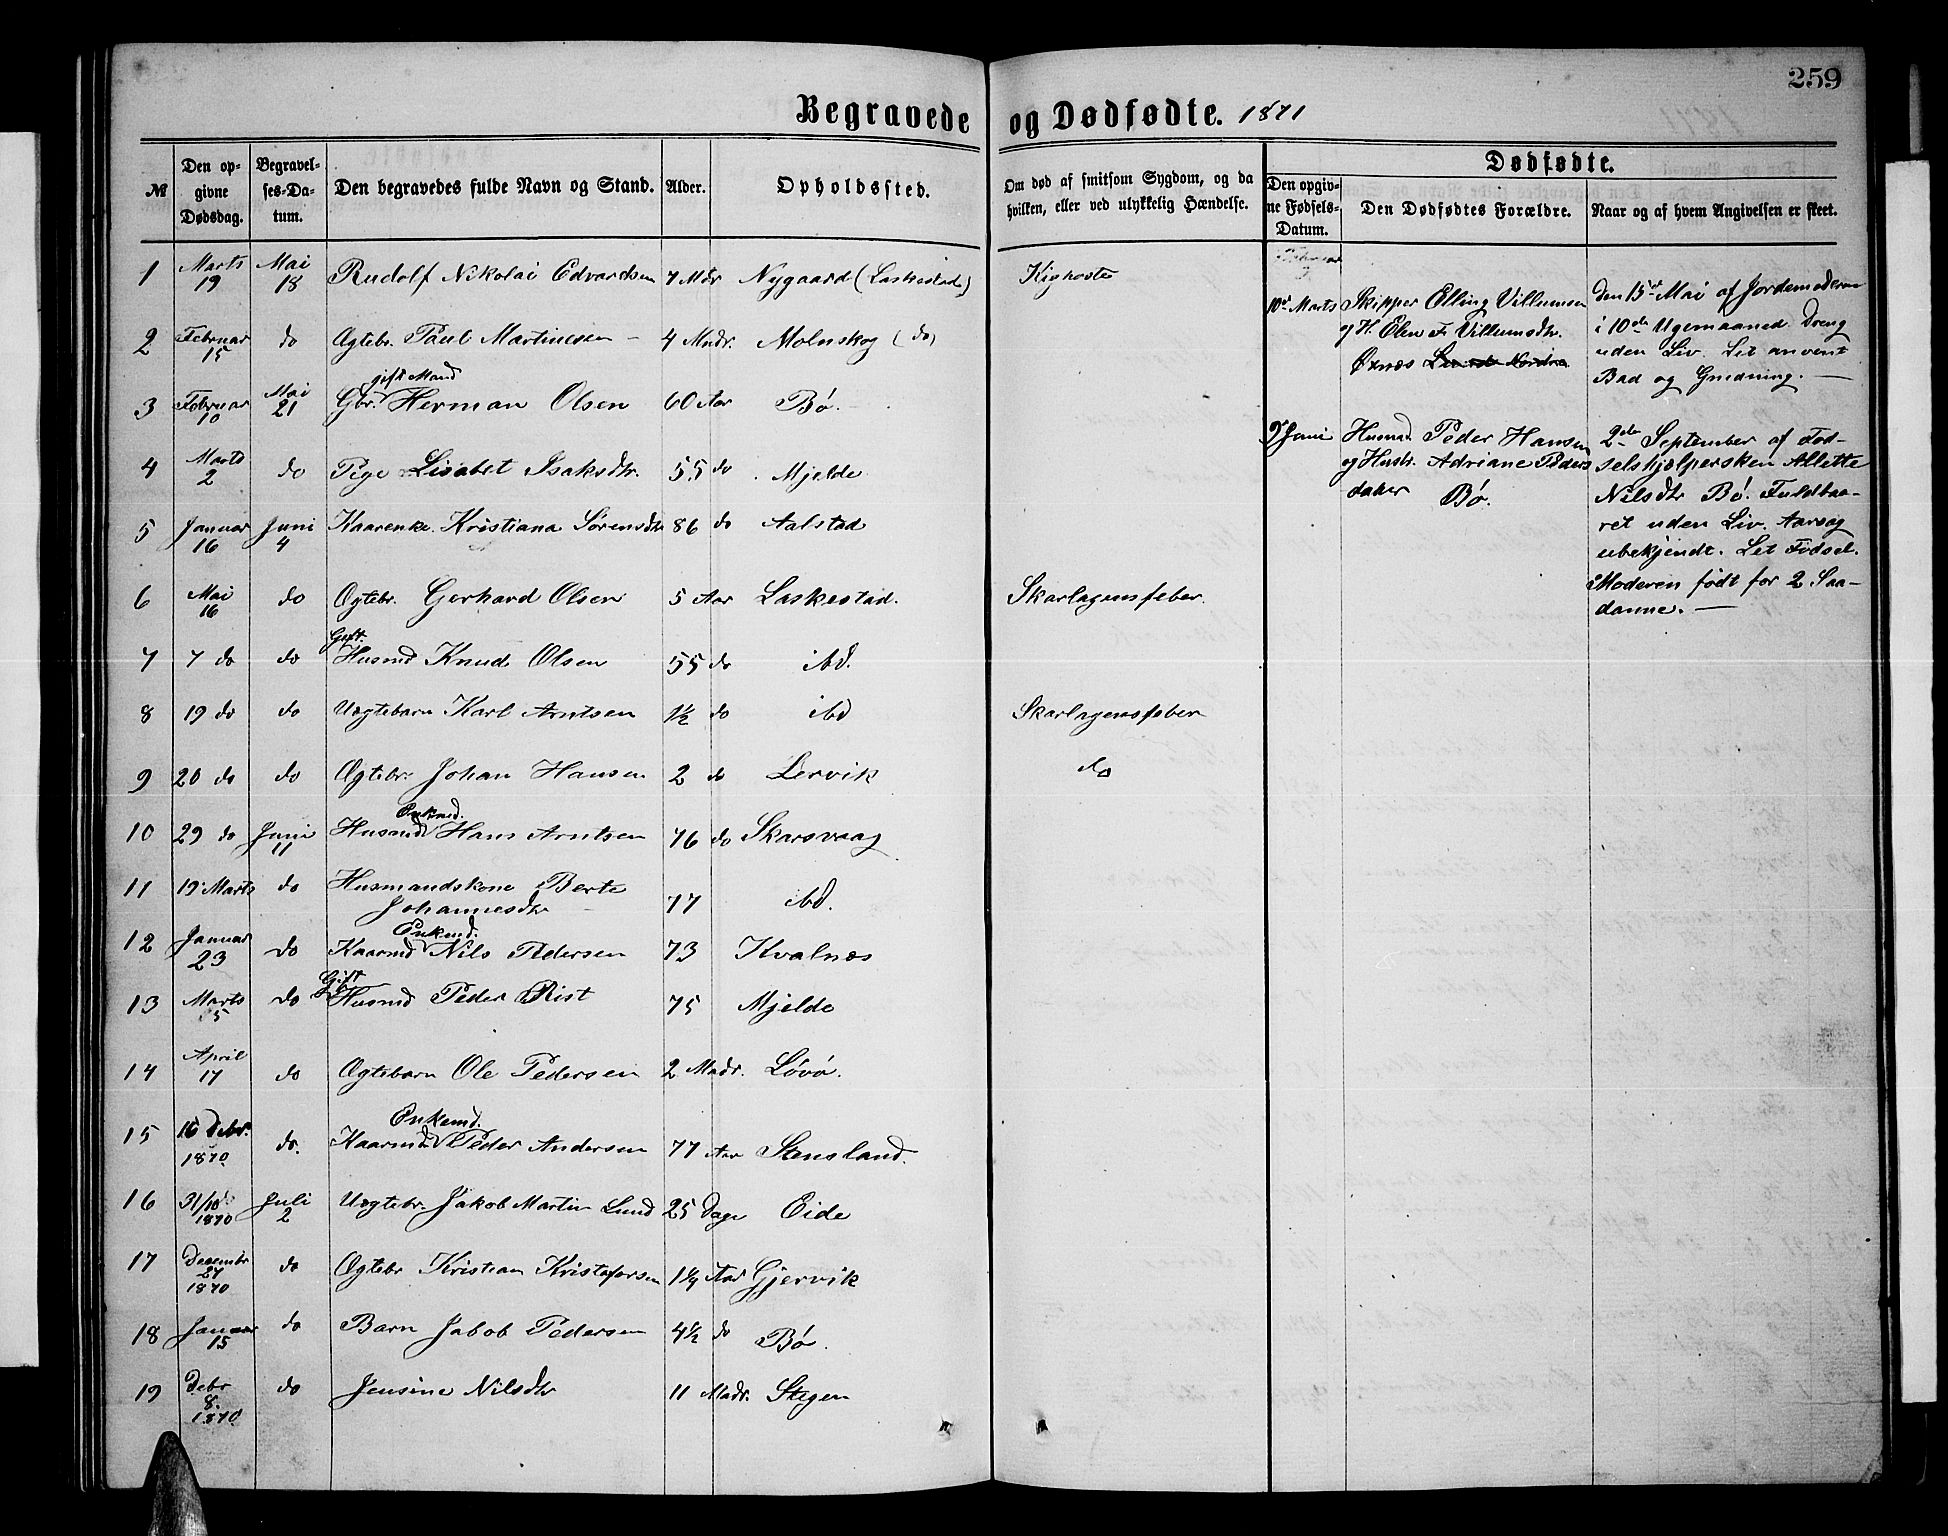 259
Begravede og Dødfødte. 1871
№ | Den opgivne Dødsdag. | Begravelses-Datum. | Den begravedes fulde Navn og Stand. | Alder. | Opholdssted. | Om død af smitsom Sygdom, og da hvilken, eller ved ulykkelig Hændelse.
1 | Marts 19 | Mai 18 | Rudolf Nikolai Edvardsen | 7 Mdr | Nygaard (Laskestad) | Kighoste
2 | Februar 15 | do | Ægtebr. Paul Martinesen – | 4 Mndr. | Molnskog (do)
3 | Februar 10 | Mai 21 | Gbr. gift Mand Herman Olsen | 60 Aar | Bø.
4 | Marts 2 | do | Pige Lisabet Isaksdtr. | 55 do | Mjelde
5 | Januar 16 | Juni 4 | Kaarenke. Kristiana Sørensdtr | 86 do | Aalstad
6 | Mai 16 | do | Ægtebr. Gerhard Olsen | 5 Aar | Laskestad. | Skarlagensfeber.
7 | 7 do | do | Gift. Husmd Knud Olsen | 55 do | ibd.
8 | 19 do | do | Uægtebarn Karl Arntsen | 1½ do | ibd | Skarlagensfeber
9 | 20 do | do | Ægtebr. Johan Hansen | 2 do | Lervik | do
10 | 29 do | Juni 11 | Husmd Enkemd. Hans Arntsen | 76 do | Skarsvaag
11 | 19 Marts | do | Husmandskone Berte Johannesdtr | 77 | ibd.
12 | Januar 23 | do | Kaarmd Enkemd. Nils Pedersen | 73 | Kvalnæs
13 | Marts 5 | do | Gift Husmd Peder Rist | 75 | Mjelde
14 | April 17 | do | Ægtebarn Ole Pedersen | 2 Mndr. | Løvø.
15 | 16 Debr. 1870 | do. | Kaarmd. Enkemd. Peder Andersen | 77 Aar | Stensland.
16 | 31/10 1870 | Juli 2 | Uægtebr. Jakob Martin Lund | 25 Dage | Eide
17 | Decembr 27 1870 | do | Ægtebr Kristian Kristofersen | 1¼ Aar | Gjervik
18 | Januar 15 | do | Barn Jabob Pedersen | 4½ do | Bø.
19 | Debr 8. 1870 | do | Jensine Nilsdtr | 11 Mndr. | Stegen
Dødfødte.
Den opgivne Fødsels-Datum. | Den Dødfødtes Forældre. | Naar og af hvem Angivelsen er skeet.
10de Marts | Skipper Elling Villumsen
og H. Elen F. Villumsdtr.
Øxnæs
Den 15de Mai af Jordemoderen
i 10de Ugemaaned. Dreng
uden Liv. Let anvent
Bad og Gnidning. —
9de Juni | Husmd. Peder Hansen
og Hustr. Adriane Peders
datter Bø.
2den September af Fød-
selshjælpersken Allette
Nilsdtr Bø. Fuldbaa-
ret uden Liv. Aarsag
ubekjendt. Let Fødsel.
Moderen født før 2 Saa-
danne. —